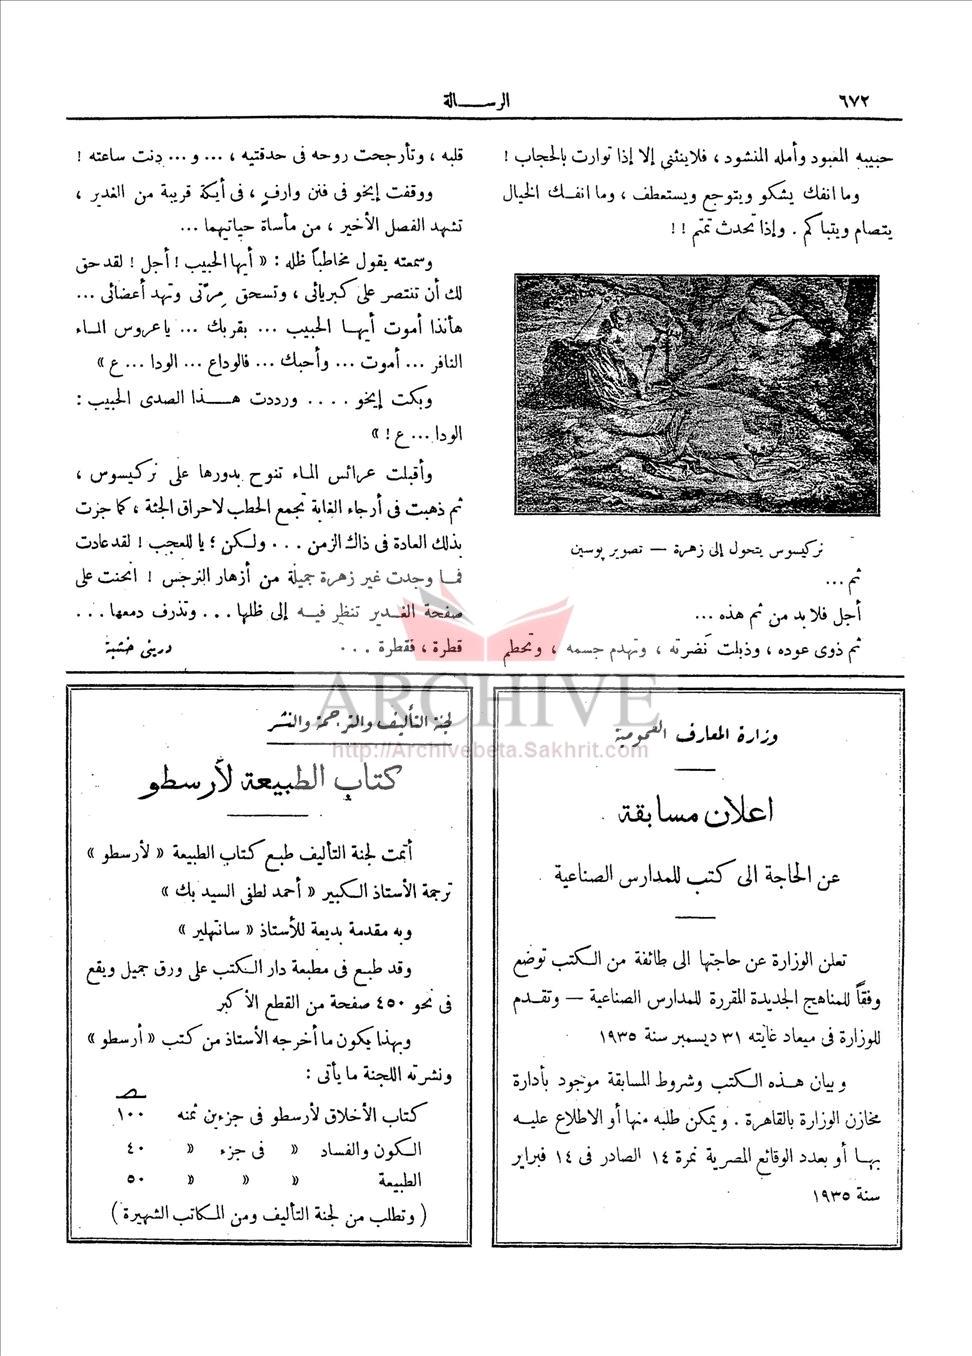 ٦٧٢
الرسالة
حبيبه المعبود وأمله المنشود ، فلا ينثني إلا إذا توارت بالحجاب !
وما انفك يشكو ويتوجع ويستعطف ، وما انفك الخيال
يتصام ويتباكم . وإذا تحدث تمتم ! !
نركيسوس يتحول إلى زهرة — تصوير پوسين
ثم ...
أجل فلا بد من ثم هذه ...
ثم ذوى عوده ، وذبلت نَضرته ، وتهدم جسمه ، وتحطم
قلبه ، وتأرجحت روحه فى حدقتيه ، ... و ... دنت ساعته !
ووقفت إيخو فى فنن وارف ، فى أيكة قريبة من الغدير ،
تشهد الفصل الأخير ، من مأساة حياتيهما ...
وسمعته يقول مخاطباً ظله : « أيها الحبيب ! أجل ! لقد حق
لك أن تنتصر على كبريائى ، وتسحق مِرّتى وتهد أعضائى ...
هأنذا أموت أيها الحبيب ... بقربك ... يا عروس الماء
النافر ... أموت ... وأحبك ... فالوداع ... الودا ... ع »
وبكت إيخو .... ورددت هذا الصدى الحبيب :
الودا ... ع ! »
وأقبلت عرائس الماء تنوح بدورها على نركيسوس ،
ثم ذهبت فى أرجاء الغابة تجمع الحطب لاحراق الجثة ، كما جرت
بذلك العادة فى ذاك الزمن ... ولكن ؛ يا للعجب ! لقد عادت
فما وجدت غير زهرة جميلة من أزهار النرجس ! انحنت على
صفحة الغدير تنظر فيه إلى ظلها ... وتذرف دمعها ...
قطرة ، فقطرة ...
دريني خشبة
ARCHIVE
http://Archivebeta.Sakhrit.com
وزارة المعارف العمومية
اعلان مسابقة
عن الحاجة الى كتب للمدارس الصناعية
تعلن الوزارة عن حاجتها الى طائفة من الكتب توضع
وفقاً للمناهج الجديدة المقررة للمدارس الصناعية — وتقدم
للوزارة فى ميعاد غايته ٣١ ديسمبر سنة ١٩٣٥
وبيان هذه الكتب وشروط المسابقة موجود بأدارة
مخازن الوزارة بالقاهرة . ويمكن طلبه منها أو الاطلاع عليه
بها أو بعدد الوقائع المصرية نمرة ١٤ الصادر فى ١٤ فبراير
سنة ١٩٣٥
لجنة التأليف والترجمة والنشر
كتاب الطبيعة لأرسطو
أتمت لجنة التأليف طبع كتاب الطبيعة « لأرسطو »
ترجمة الأستاذ الكبير « أحمد لطفى السيد بك »
وبه مقدمة بديعة للأستاذ « سانتهلير »
وقد طبع فى مطبعة دار الكتب على ورق جميل ويقع
فى نحو ٤٥٠ صفحة من القطع الأكبر
وبهذا يكون ما أخرجه الأستاذ من كتب « أرسطو »
ونشرته اللجنة ما يأتى :
كتاب الأخلاق لأرسطو فى جزءين ثمنه ١٠٠
الكون والفساد » فى جزء » ٤٠
الطبيعة » » » ٥٠
( وتطلب من لجنة التأليف ومن المكاتب الشهيرة )